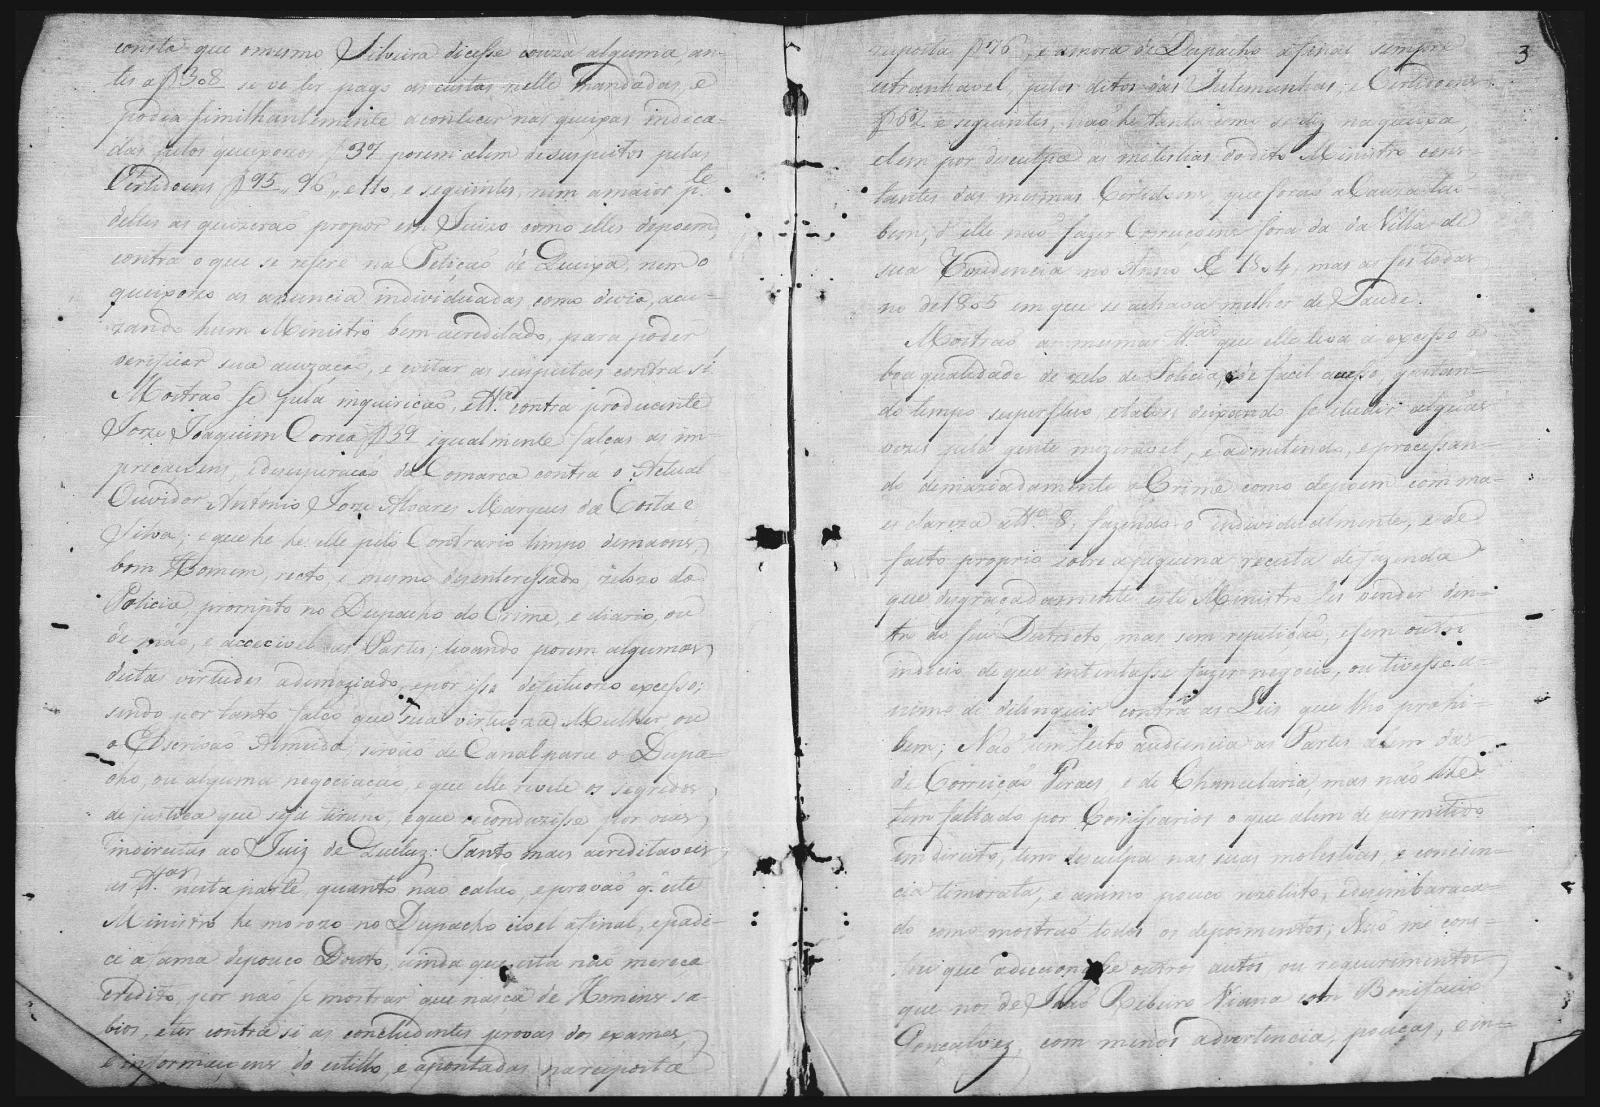 consta que o mesmo Silveira dicesse couza alguma, an-
tes a f 308 se ve ler pago as custas nelle mandadas, e
podia similhantemente acontecer nas queixas indica-
das pelos queixozos f 37 porem alem de suspeitos pelas
Certidoens f 95, 96, e 110, e seguintes, nem a maior p.te
delles as quizerão propor em Juizo como elles depoem,
contra o que se refere na Petição de Queixa, nem o
queixozo as anuncia individuadas como devia, acu-
zando hum Ministro bem acreditado, para poder
verificar sua acuzação, e evitar as suspeitas contra si
Mostrão se pela inquirição, e tt.as contra producente
Joze Joaquim Correa f 39 igualmente falças as im
precaçoens, e desesperação da Comarca contra o Actual
Ouvidor Antonio Joze Alvares Marques da Costa e
Silva; e que he elle pelo Contrario limpo de maons,
bom Homem, recto, e mesmo desenteressado, zelozo da
Policia, prompto no Despacho do Crime, e diario, ou
de mão, e accecivel as Partes; levando porem algumas
destas virtudes a demaziado, e por isso defeituozo excesso;
sendo por tanto falço que sua virtuoza Mulher ou
o Escrivão Almeida sirvão de Canal para o Despa-
cho, ou alguma negociação, e que elle revele os segredos
de justiça que seja tirano, e que recondozisse por vias
indirectas ao Juiz de Queluz: Tanto mais acreditaveis
as tt.as nesta parte, quanto não calão, e provão q. este
Ministro he morozo no Despacho civel afinal, e pade-
ce a fama de pouco Douto, ainda que esta não mereca
credito, por não se mostrar que nasça de Homens sa-
bios, e ter contra si as concludentes provas dos exames,
e informaçoens do estillo, e apontadas na resposta
3
resposta f 176, e a mora de Despacho afinal sempre
estranhavel, pelos ditos das Testemunhas, e Certidoens
f 52 e seguintes, não he tanta como se diz na queixa,
e tem por desculpa as molestias do dito Ministro cons-
tantes das mesmas Certidoens, que forão a Cauza tão-
bem, d'elle não fazer Correiçoens fora da da Villa de
sua Rezidencia no Anno de 1804, mas as fes todas
no de 1805 em que se achava melhor de Saude.
Mostrão as mesmas tt.as que elle leva a excesso a
boa qualidade de zelo de Policia, e de facil acesso, gastan-
do tempo superfluo, e talvez deixando se iludir algũas
vezes pela gente mizeravel, e admitindo, e processan-
do demaziadamente o Crime como depoem com ma-
es clareza a tt.a 8; fazendo o individualmente, e de
facto proprio sobre a pequena receita de fazenda
que desgraçadamente este Ministro fes vender den-
tro do seu Districto, mas sem repetição, e sem outro
indicio de que intentasse fazer negocio, ou tivesse a-
nimo de delinquir contra as Leis que lho prohi-
bem; Não tem feito audiencia as Partes alem das
de Correição Geraes, e de Chancelaria, mas não lhe
tem faltado por Comissarios o que alem de permitido
em direito, tem desculpa nas suas molestias, e concien-
cia timorata, e animo pouco rezoluto, e desembaraça-
do como mostrão todos os depoimentos; Não me cons-
tou que adicionasse outros autos ou requerimentos
que nos de João Ribeiro Viana com Bonifacio
Goncalvez com menos advertencia, poucas, e in-